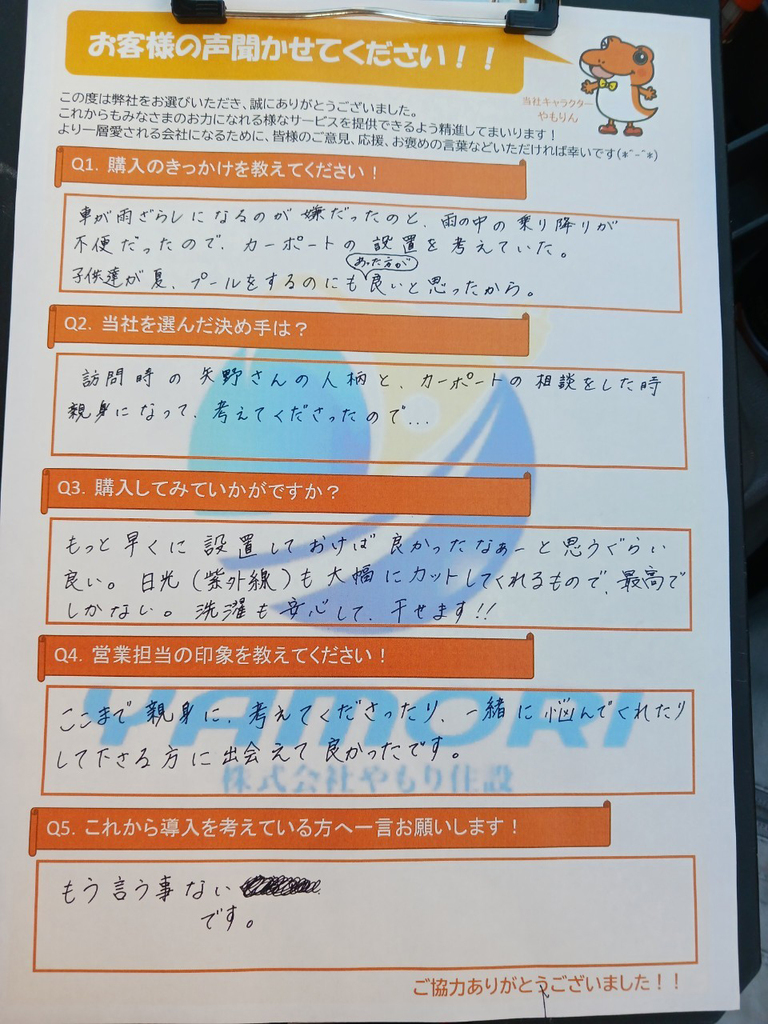 お客様の声聞かせてください！！
当社キャラクター
やもりん
この度は弊社をお選びいただき、誠にありがとうございました。
これからもみなさまのお力になれる様なサービスを提供できるよう精進してまいります！
より一層愛される会社になるために、皆様のご意見、応援、お褒めの言葉などいただければ幸いです(*^-^*)
Q1. 購入のきっかけを教えてください！
車が雨ざらしになるのが嫌だったのと、雨の中の乗り降りが
不便だったので、カーポートの設置を考えていた。
子供達が夏、プールをするのにもあった方が良いと思ったから。
Q2. 当社を選んだ決め手は？
訪問時の矢野さんの人柄と、カーポートの相談をした時
親身になって、考えてくださったので...
Q3. 購入してみていかがですか？
もっと早くに設置しておけば良かったなぁーと思うぐらい
良い。日光(紫外線)も大幅にカットしてくれるもので、最高で
しかない。洗濯も安心して、干せます!!
Q4. 営業担当の印象を教えてください！
ここまで親身に、考えてくださったり、一緒に悩んでくれたり
して下さる方に出会えて良かったです。
YAMORI
株式会社やもり住設
Q5. これから導入を考えている方へ一言お願いします！
もう言う事ない
です。
ご協力ありがとうございました！！